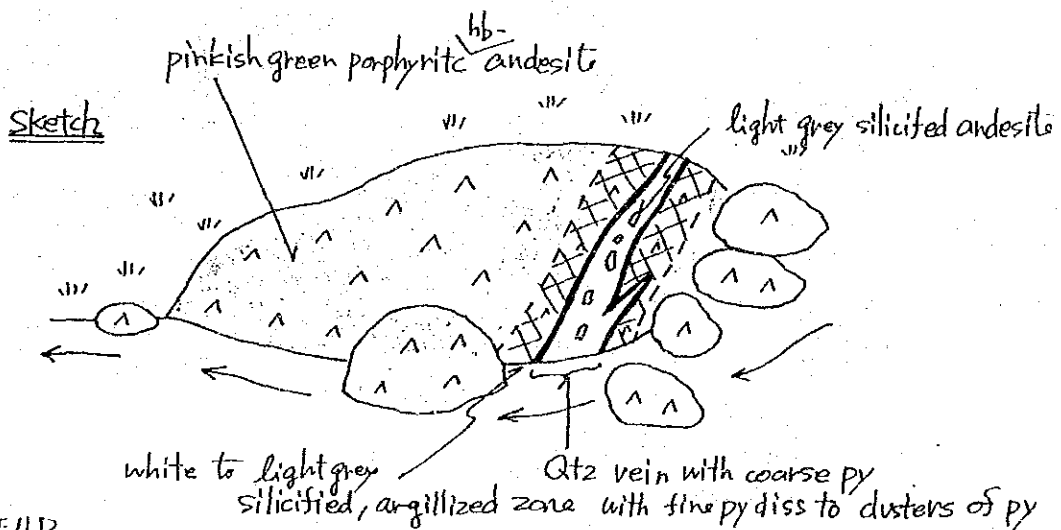 hb-
pinkish green porphyritc andesite
Sketch
light grey silicified andesite
white to light grey
silicified, argillized zone with fine py diss to clusters of py
Qtz vein with coarse py